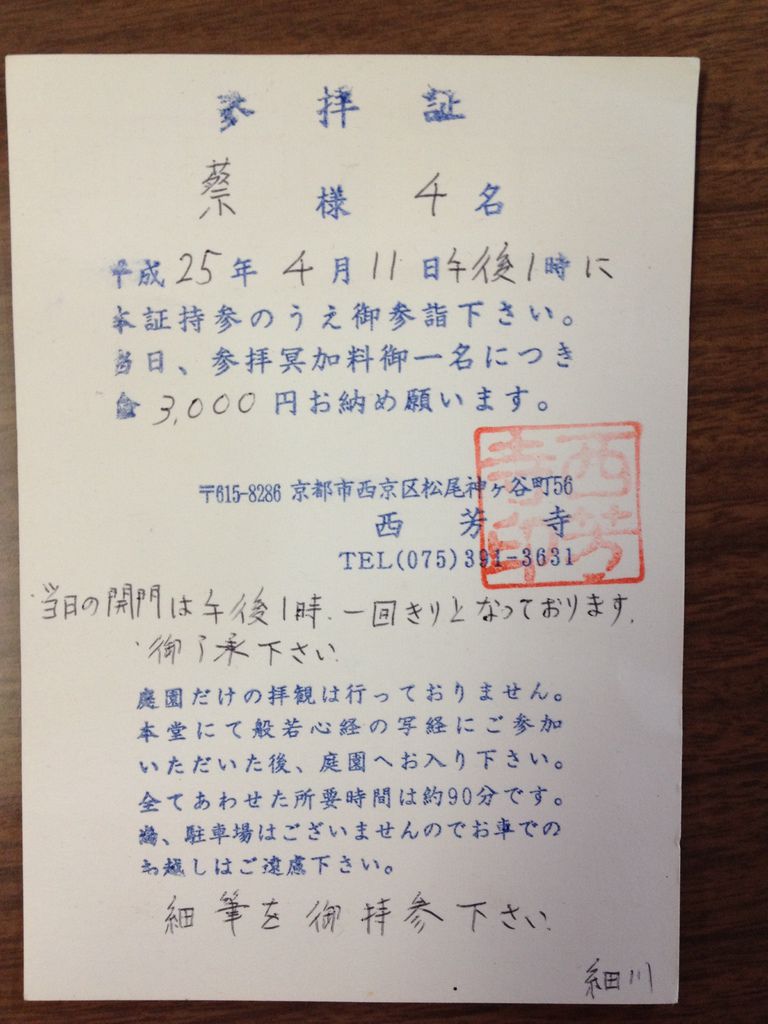 参拝証
蔡 様 4名
平成25年4月11日午後1時に
本証持参のうえ御参詣下さい。
当日、参拝冥加料御一名につき
金3,000円お納め願います。
〒615-8286 京都市西京区松尾神ヶ谷町56
西芳寺
TEL(075)391-3631
西芳寺印
当日の開門は午後1時.一回きりとなっております.
御了承下さい.
庭園だけの拝観は行っておりません。
本堂にて般若心経の写経にご参加
いただいた後、庭園へお入り下さい。
全てあわせた所要時間は約90分です。
尚、駐車場はございませんのでお車での
お越しはご遠慮下さい。
細筆を御持参下さい.
細川